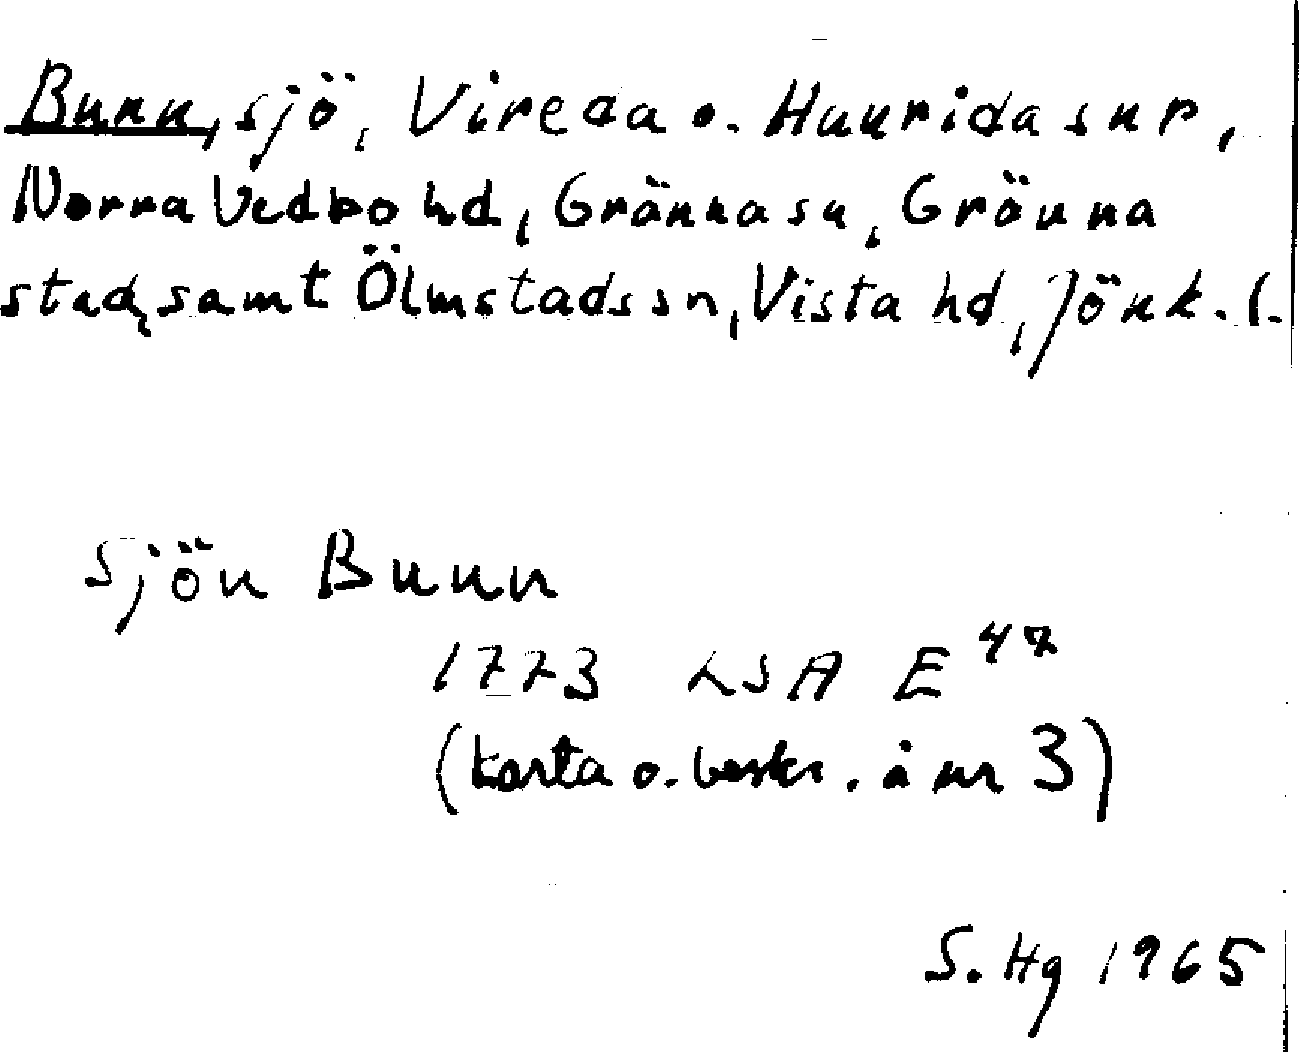 Bunn, sjö, Vireda o. Haurida snr,
Norra Vedbo hd, Gränna sn, Gränna
stad, samt Ölmstads sn, Vista hd, Jönk. l.
Sjön Bunn
1773 LSA E 47
(karta o. beskr. å nr 3)
S. Hg 1965